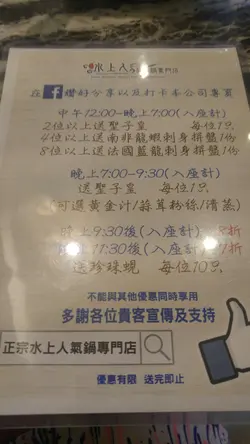 水上人
鍋專門店
在f讚好分享以及打卡本公司專頁
中午12:00-晚上7:00(入座計)
2位以上送聖子皇 每位1只
4位以上送南非龍蝦刺身拼盤1份
8位以上送法國藍龍刺身拼盤1份
晚上7:00-9:30(入座計)
送聖子皇 每位1只
(可選黃金汁/蒜茸粉絲/清蒸)
晚上9:30後(入座計) 8折
11:30後(入座計) 折
送珍珠蜆 每位10只
不能與其他優惠同時享用
多謝各位貴客宣傳及支持
正宗水上人氣鍋專門店
優惠有限 送完即止